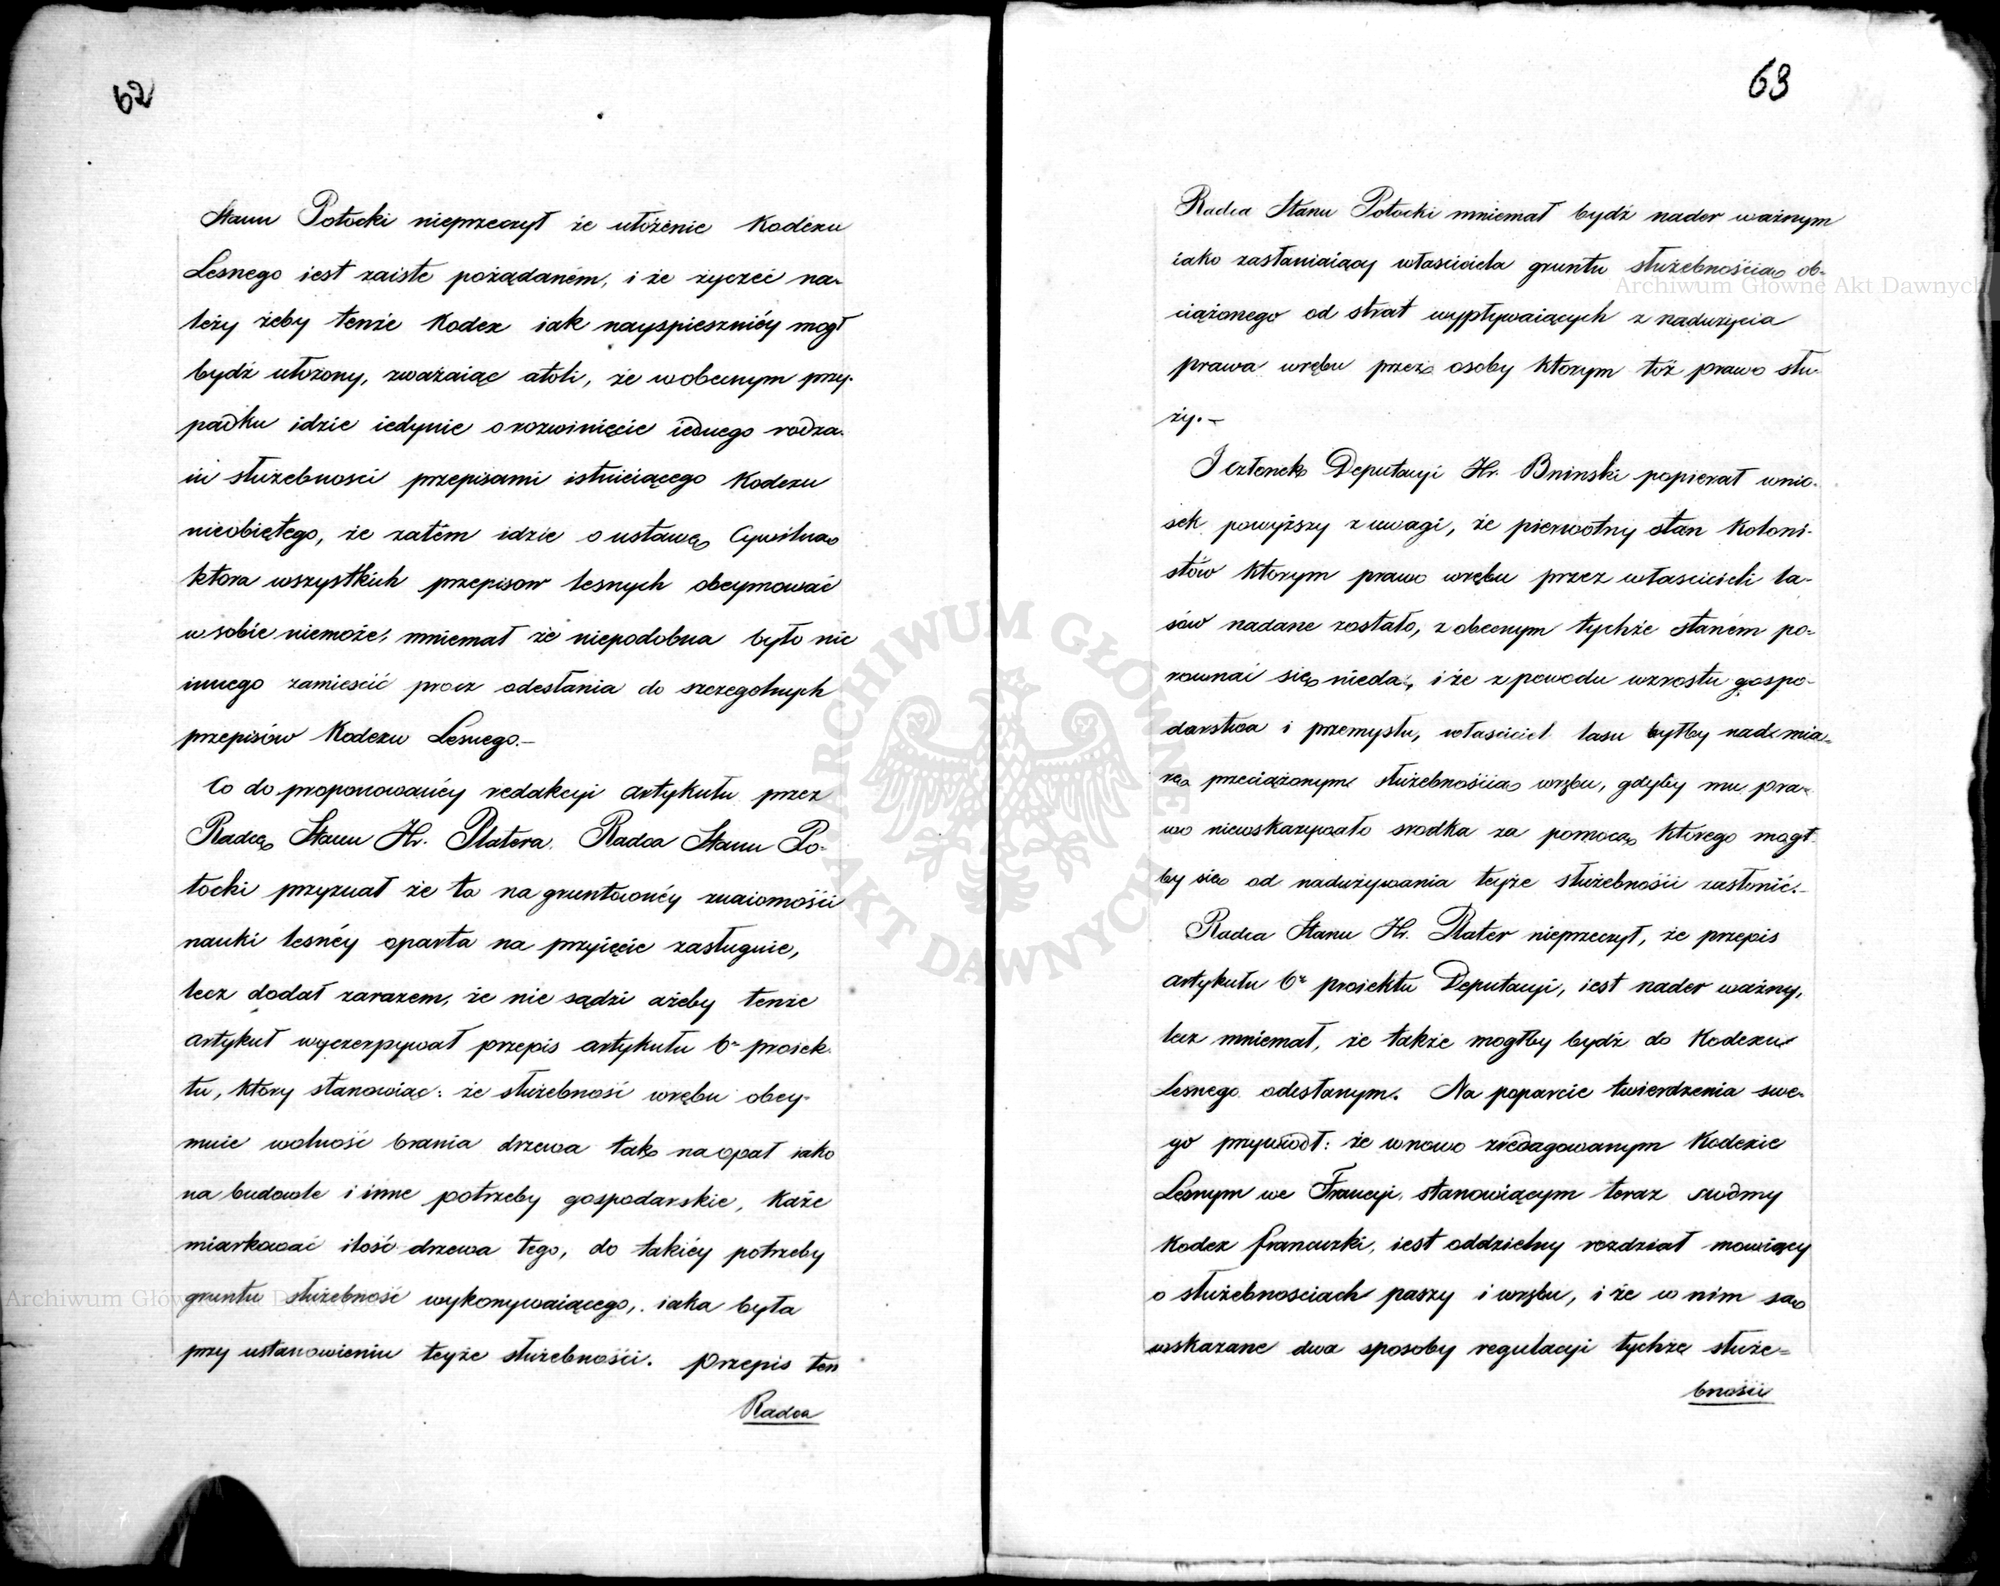 62
Stanu Potocki nieprzeczył że ułożenie Kodexu
Lesnego iest zaiste pożądaném, i że życzeć na-
leży żeby tenże Kodex iak nayspiesznićy mogł
bydź ułożony, zważaiąc atoli, że w obecnym przy-
padku idzie iedynie o rozwinięcie iednego rodza-
iu służebnosci przepisami istnieiącego Kodexu
nieobiętego, że zatém idzie o ustawę Cywilną
ktora wszystkich przepisow lesnych obeymować
w sobie niemoże, mniemał że niepodobna było nic
innego zamiescić procz odesłania do szczegolnych
przepisów Kodexu Lesnego.—
Co do proponowanćy redakcyi artykułu przez
Radcę Stanu Hr. Platera. Radca Stanu Po-
tocki przyznał że ta na gruntownćy znaiomości
nauki lesnćy oparta na przyięcie zasługuie,
lecz dodał zarazem, że nie sądzi ażeby tenże
artykuł wyczerpywał przepis artykułu 6º proiek-
tu, ktory stanowiąc: że służebność wrębu obey-
muie wolność brania drzewa tak na opał iako
na budowle i inne potrzeby gospodarskie, każe
miarkować ilość drzewa tego, do takićy potrzeby
gruntu służebność wykonywaiącego, iaka była
przy ustanowieniu teyże służebności. Przepis ten
Radca
63
Radca Stanu Potocki mniemał bydź nader ważnym
iako zasłaniaiący własciciela gruntu służebnością ob-
ciążonego od strat wypływaiących z nadużycia
prawa wrębu przez osoby ktorym toż prawo słu-
ży.—
I członek Deputacyi Hr. Bninski popierał wnio-
sek powyższy z uwagi, że pierwotny stan Koloni-
stów ktorym prawo wrębu przez własicieli la-
sów nadane zostało, z obecnym tychże staném po-
rownać się nieda, i że z powodu wzrostu gospo-
darstwa i przemysłu, własciciel lasu byłby nad mia-
rę przeciążonym służebnością wrębu, gdyby mu pra-
wo niewskazywało srodka za pomocą ktorego mogł-
by się od nadużywania teyże służebności zasłonić.—
Radca Stanu Hr. Plater nieprzeczył, że przepis
artykułu 6º proiektu Deputacyi, iest nader ważny,
lecz mniemał, że także mogłby bydź do Kodexu
Lesnego odesłanym. Na poparcie twierdzenia swe-
go przywiodł: że w nowo zredagowanym Kodexie
Lesnym we Francyi, stanowiącym teraz siodmy
Kodex francuzki, iest oddzielny rozdział mowiący
o służebnosciach paszy i wrębu, i że w nim są
wskazane dwa sposoby regulacyi tychże służe-
bności
Archiwum Główne Akt Dawnych
Archiwum Główne Akt Dawnych
ARCHIWUM GŁÓWNE AKT DAWNYCH